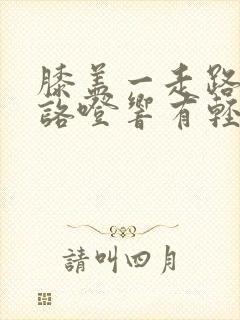 膝盖一走路
咯噔响有轻
請叫四月